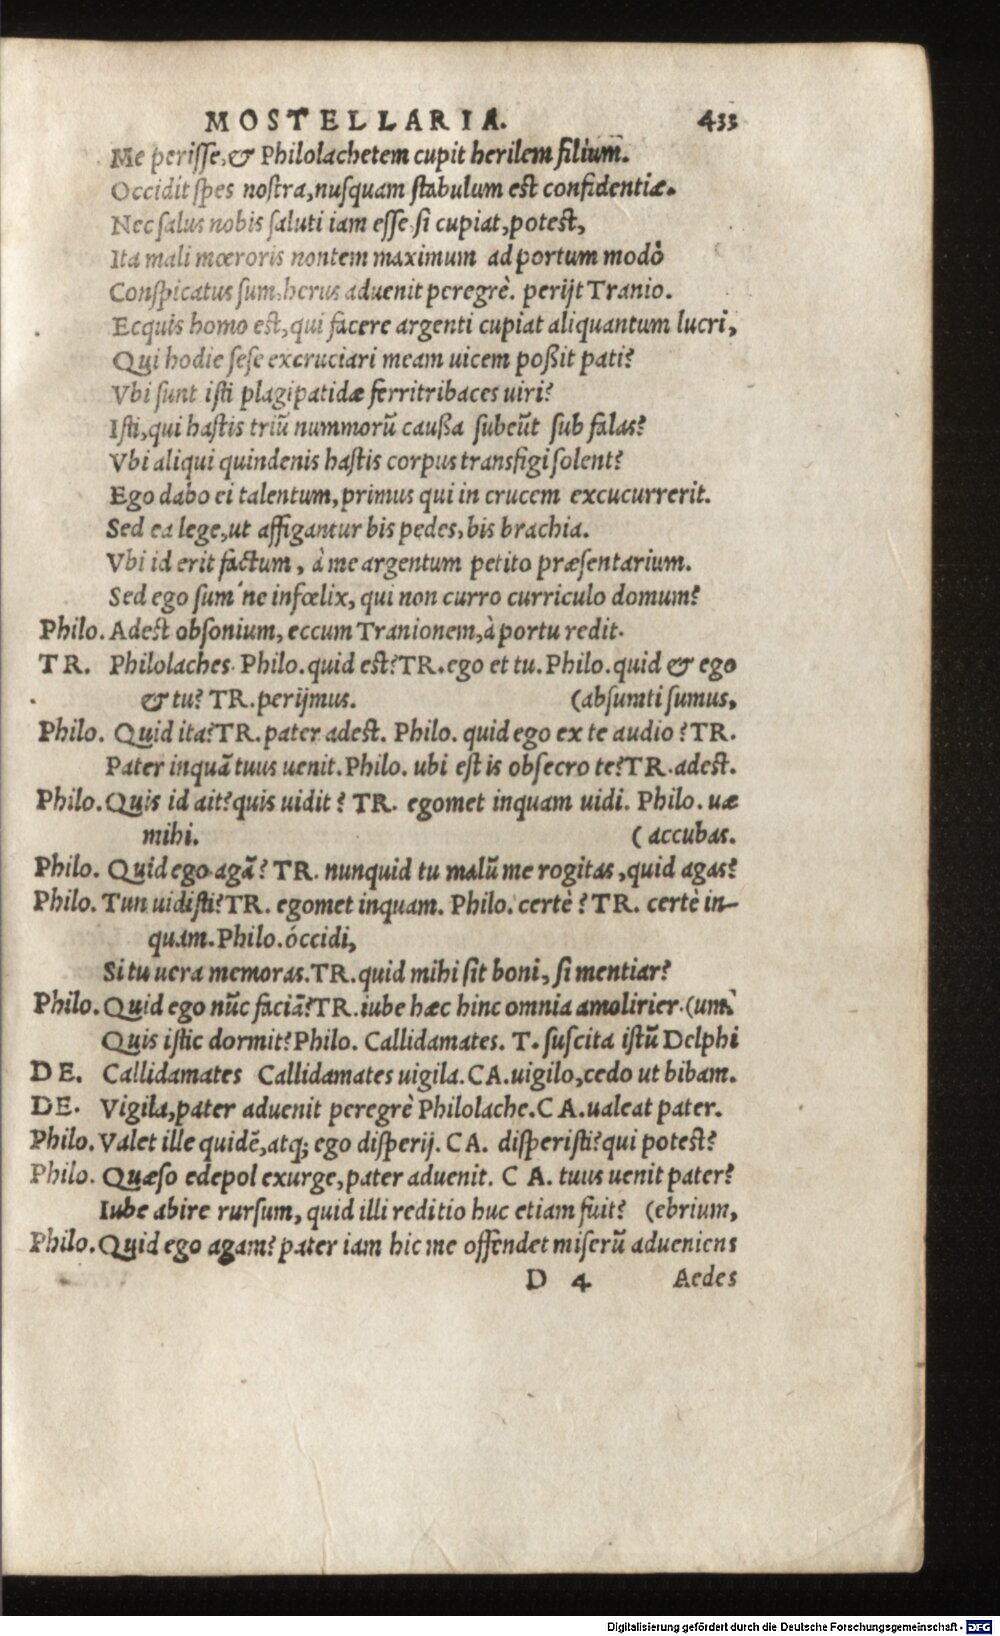 MOSTELLARIA. 433
Me perisse, & Philolachetem cupit herilem filium.
Occidit spes nostra, nusquam stabulum est confidentiæ.
Nec salus nobis saluti iam esse si cupiat, potest,
Ita mali mœroris nontem maximum ad portum modò
Conspicatus sum, herus aduenit peregrè. perijt Tranio.
Ecquis homo est, qui facere argenti cupiat aliquantum lucri,
Qui hodie sese excruciari meam uicem poßit pati?
Vbi sunt isti plagipatidæ ferritribaces uiri?
Isti, qui hastis triũ nummorũ caußa subeũt sub falas?
Vbi aliqui quindenis hastis corpus transfigi solent?
Ego dabo ei talentum, primus qui in crucem excucurrerit.
Sed ea lege, ut affigantur bis pedes, bis brachia.
Vbi id erit factum, à me argentum petito præsentarium.
Sed ego sum'ne infœlix, qui non curro curriculo domum?
Philo. Adest obsonium, eccum Tranionem, à portu redit.
TR. Philolaches. Philo. quid est? TR. ego et tu. Philo. quid & ego
& tu? TR. perijmus. (absumti sumus,
Philo. Quid ita? TR. pater adest. Philo. quid ego ex te audio? TR.
Pater inquã tuus uenit. Philo. ubi est is obsecro te? TR. adest.
Philo. Quis id ait? quis uidit? TR. egomet inquam uidi. Philo. uæ
mihi. (accubas.
Philo. Quid ego agã? TR. nunquid tu malũ me rogitas, quid agas?
Philo. Tun uidisti? TR. egomet inquam. Philo. certè? TR. certè in-
quam. Philo. óccidi,
Si tu uera memoras. TR. quid mihi sit boni, si mentiar?
Philo. Quid ego nũc faciã? TR. iube hæc hinc omnia amolirier. (um
Quis istic dormit? Philo. Callidamates. T. suscita istũ Delphi
DE. Callidamates Callidamates uigila. CA. uigilo, cedo ut bibam.
DE. Vigila, pater aduenit peregrè Philolache. CA. ualeat pater.
Philo. Valet ille quidẽ, atq; ego disperij. CA. disperisti? qui potest?
Philo. Quæso edepol exurge, pater aduenit. CA. tuus uenit pater?
Iube abire rursum, quid illi reditio huc etiam fuit? (ebrium,
Philo. Quid ego agam? pater iam hic me offendet miserũ adueniens
D 4 Aedes
Digitalisierung gefördert durch die Deutsche Forschungsgemeinschaft - DFG